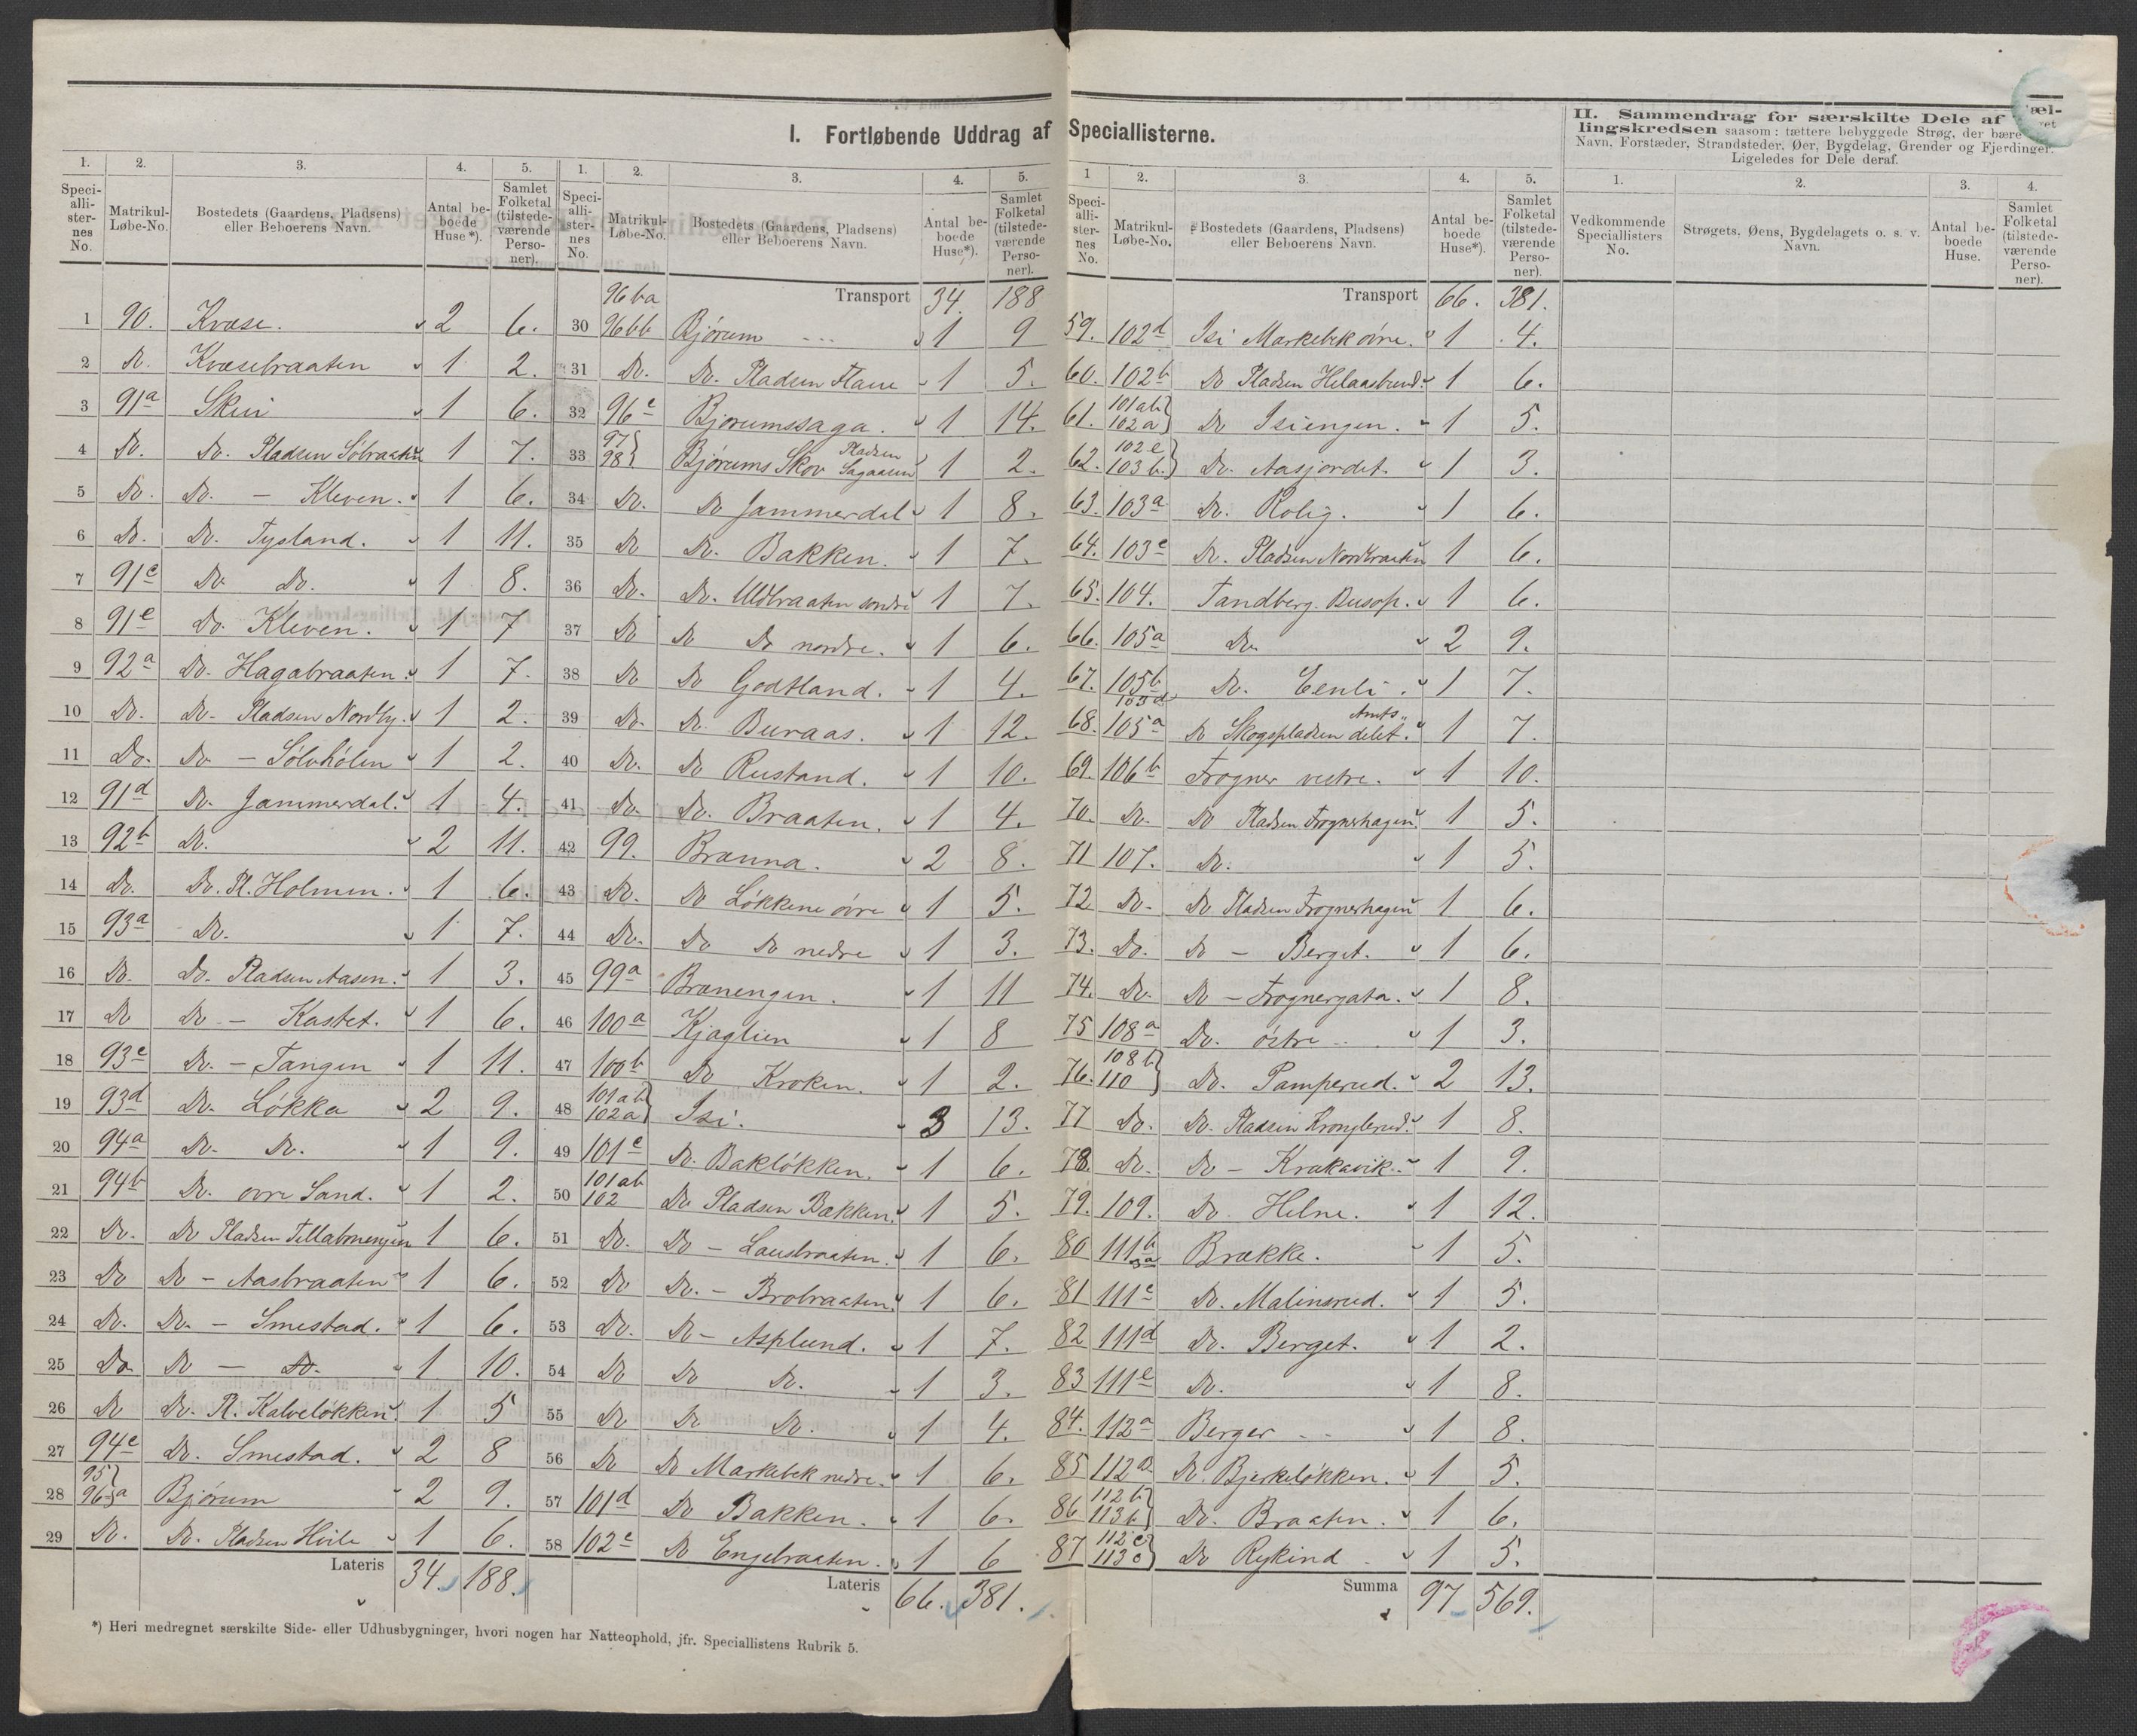 I. Fortløbende Uddrag af Speciallisterne.
II. Sammendrag for særskilte Dele af
lingskredsen saasom: tættere bebyggede Strøg, der bære
Navn, Forstæder, Strandsteder, Øer, Bygdelag, Grender og Fjerdinger.
Ligeledes for Dele deraf.
1. 2. 3. 4. 5.
Speciallisternes No. Matrikul-Løbe-No. Bostedets (Gaardens, Pladsens) eller Beboerens Navn. Antal beboede Huse*). Samlet Folketal (tilstedeværende Personer).
1 90. Kvæse. 2 6.
2 Do. Kvæsebraaten 1 2.
3 91a Skui 1 6.
4 Do. Do. Pladsen Sölvraaten 1 7.
5 Do. Do. — Kleven. 1 6.
6 Do. Do. Tysland. 1 11.
7 91c Do. Do. 1 8.
8 91e Do. Kleven. 1 7
9 92a Do. Hagabraaten. 1 7.
10 Do. Do. Pladsen Nordby. 1 2.
11 Do. Do — Sölvhölen 1 2.
12 91d Do. Jammerdal. 1 4.
13 92b Do. 2 11.
14 Do. Do. Pl. Holmen. 1 6.
15 93a Do. 1 7.
16 Do. Do. Pladsen Aasen. 1 3.
17 Do Do. — Kastet. 1 6.
18 93c Do. — Tangen 1 11.
19 93d Do. Løkka 2 9.
20 94a Do. Do. 1 9.
21 94b Do. øvre Sand. 1 2.
22 Do. Do Pladsen 1 6.
23 Do Do — Aasbraaten 1 6.
24 Do. Do. — Smestad. 1 6.
25 Do. Do — Do. 1 10.
26 Do Do. Pl. Kalveløkken 1 5
27 94c Do. Smestad. 2 8
28 95} 96a Bjørum 2 9.
29 Do. Do. Pladsen Hvile 1 6.
Lateris 34. 188.
1. 2. 3. 4. 5.
Speciallisternes No. Matrikul-Løbe-No. Bostedets (Gaardens, Pladsens) eller Beboerens Navn. Antal beboede Huse*). Samlet Folketal (tilstedeværende Personer).
Transport 34. 188
30 96ba 96bb Bjørum 1 9
31 Do. Do. Pladsen 1 5.
32 96c Bjorumssaga. 1 14.
33 97 98} Bjørums Skov Pladsen Sagaasen 1 2.
34 Do. Do Jammerdal 1 8.
35 Do Do. Bakken. 1 7.
36 Do. Do. Uldbraaten søndre 1 7.
37 Do Do Do nordre. 1 6.
38 Do Do Godtland. 1 4.
39 Do. Do. Buraas. 1 12.
40 Do. Do Rustand. 1 10.
41 Do. Do. Braaten. 1 4.
42 99. Brænna. 2 8.
43 Do. Do Løkkene øvre 1 5.
44 Do. Do Do nedre 1 3.
45 99a Brænengen. 1 11
46 100a Kjaglien 1 8
47 100b Do Kroken. 1 2.
48 101ab 102a} Isi. 3 13.
49 101c Do. Bakløkken. 1 6.
50 101ab 102 Do Pladsen Bakken. 1 5.
51 Do. Do — Lausbraaten. 1 6.
52 Do Do. — Brobraaten. 1 6.
53 Do. Do — Asplund. 1 7.
54 Do Do Do. 1 3.
55 Do Do Do. 1 4.
56 Do Do Markebek nedre. 1 6.
57 101d Do Bakken. 1 6.
58 102c Do Engebraaten. 1 6
Lateris 66. 381.
1 2. 3. 4. 5.
Speciallisternes No. Matrikul-Løbe-No. Bostedets (Gaardens, Pladsens) eller Beboerens Navn. Antal beboede Huse*). Samlet Folketal (tilstedeværende Personer).
Transport 66. 381.
59. 102d Isi Markebek øvre. 1 4.
60. 102b Do Pladsen Helaasbund. 1 6.
61. 101ab 102a} Do Isiengen. 1 5.
62. 102e 103b.} Do. Aasjordet. 1 3.
63. 103a Do. Rolig. 1 6.
64. 103c Do. Pladsen Nordbraaten 1 6.
65. 104. Tandberg. Busop. 1 6.
66. 105a Do. 2 9.
67. 105b 105d Do. Eenli. 1 7.
68. 105a Do Skogspladsen Amtsdelet. 1 7.
69. 106b Frogner vestre. 1 10.
70. Do. Do Pladsen Frognerhagen. 1 5.
71 107. Do. 1 5.
72 Do. Do Pladsen Frognerhagen 1 6.
73. Do. Do — Berget. 1 6.
74. Do. Do — Frognergata. 1 8.
75 108a Do. østre 1 3.
76. 108b 110} Do. Pamperud. 2 13.
77 Do. Do. Pladsen Kronglerud. 1 8.
78. Do. Do — Krakavik. 1 9.
79. 109. Do Helne. 1 12.
80 111b Brække. 1 5.
81 111c Do. Malinsrud. 1 5.
82 111d Do. Berget. 1 2.
83 111e Do. 1 8.
84. 112a Berger 1 8.
85 112d Do. Bjerkeløkken. 1 5.
86 112b 113b} Do. Braaten. 1 6.
87 112c 113c} Do Rykind 1 5.
Summa 97 569.
1. 2. 3. 4.
Vedkommende Speciallisters No. Strøgets, Øens, Bygdelagets o. s. v. Navn. Antal beboede Huse. Samlet Folketal (tilstedeværende Personer).
*) Heri medregnet særskilte Side- eller Udhusbygninger, hvori nogen har Natteophold, jfr. Speciallistens Rubrik 5.